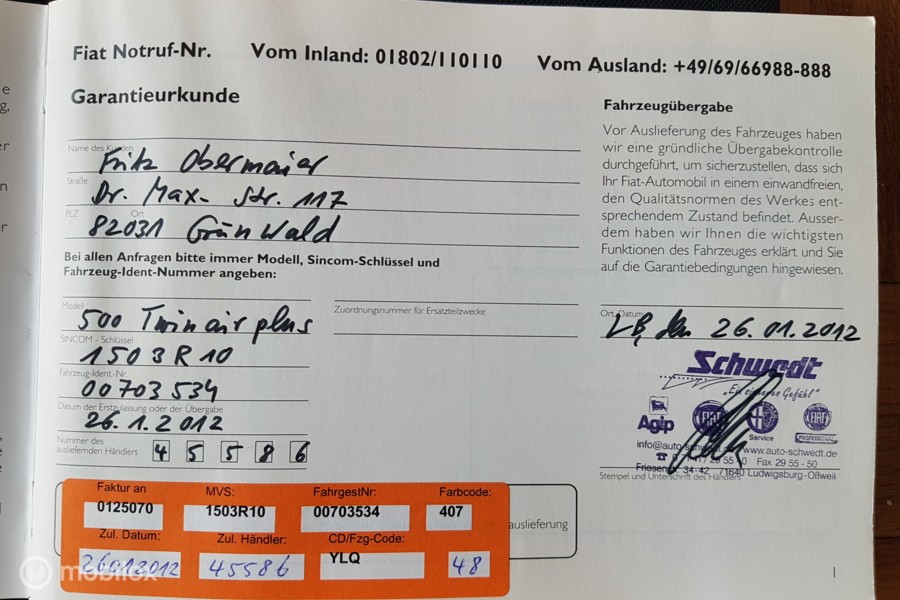 Fiat Notruf-Nr. Vom Inland: 01802/110110 Vom Ausland: +49/69/66988-888
Garantieurkunde
Name des Kunden
Fritz Obermaier
Straße
Dr. Max- Str. 117
PLZ Ort
82031 Grünwald
Bei allen Anfragen bitte immer Modell, Sincom-Schlüssel und
Fahrzeug-Ident-Nummer angeben:
Modell
500 Twinair plus
Zuordnungsnummer für Ersatzteilzwecke
SINCOM - Schlüssel
1503R10
Fahrzeug-Ident.-Nr.
00703534
Datum der Erstzulassung oder der Übergabe
26.1.2012
Nummer des
ausliefernden Händlers
4 5 5 8 6
Fahrzeugübergabe
Vor Auslieferung des Fahrzeuges haben
wir eine gründliche Übergabekontrolle
durchgeführt, um sicherzustellen, dass sich
Ihr Fiat-Automobil in einem einwandfreien,
den Qualitätsnormen des Werkes ent-
sprechendem Zustand befindet. Ausser-
dem haben wir Ihnen die wichtigsten
Funktionen des Fahrzeuges erklärt und Sie
auf die Garantiebedingungen hingewiesen.
Ort, Datum
LB, den 26.01.2012
Schwedt
Agip
FIAT
Service
FIAT
PROFESSIONAL
www.auto-schwedt.de
Fax 29 55 - 50
34-42 71640 Ludwigsburg-Oßweil
Stempel und Unterschrift des Händlers
Faktur an MVS: FahrgestNr: Farbcode:
0125070 1503R10 00703534 407
Zul. Datum: Zul. Händler: CD/Fzg-Code:
26012012 45586 YLQ 48
auslieferung
mobilox
1